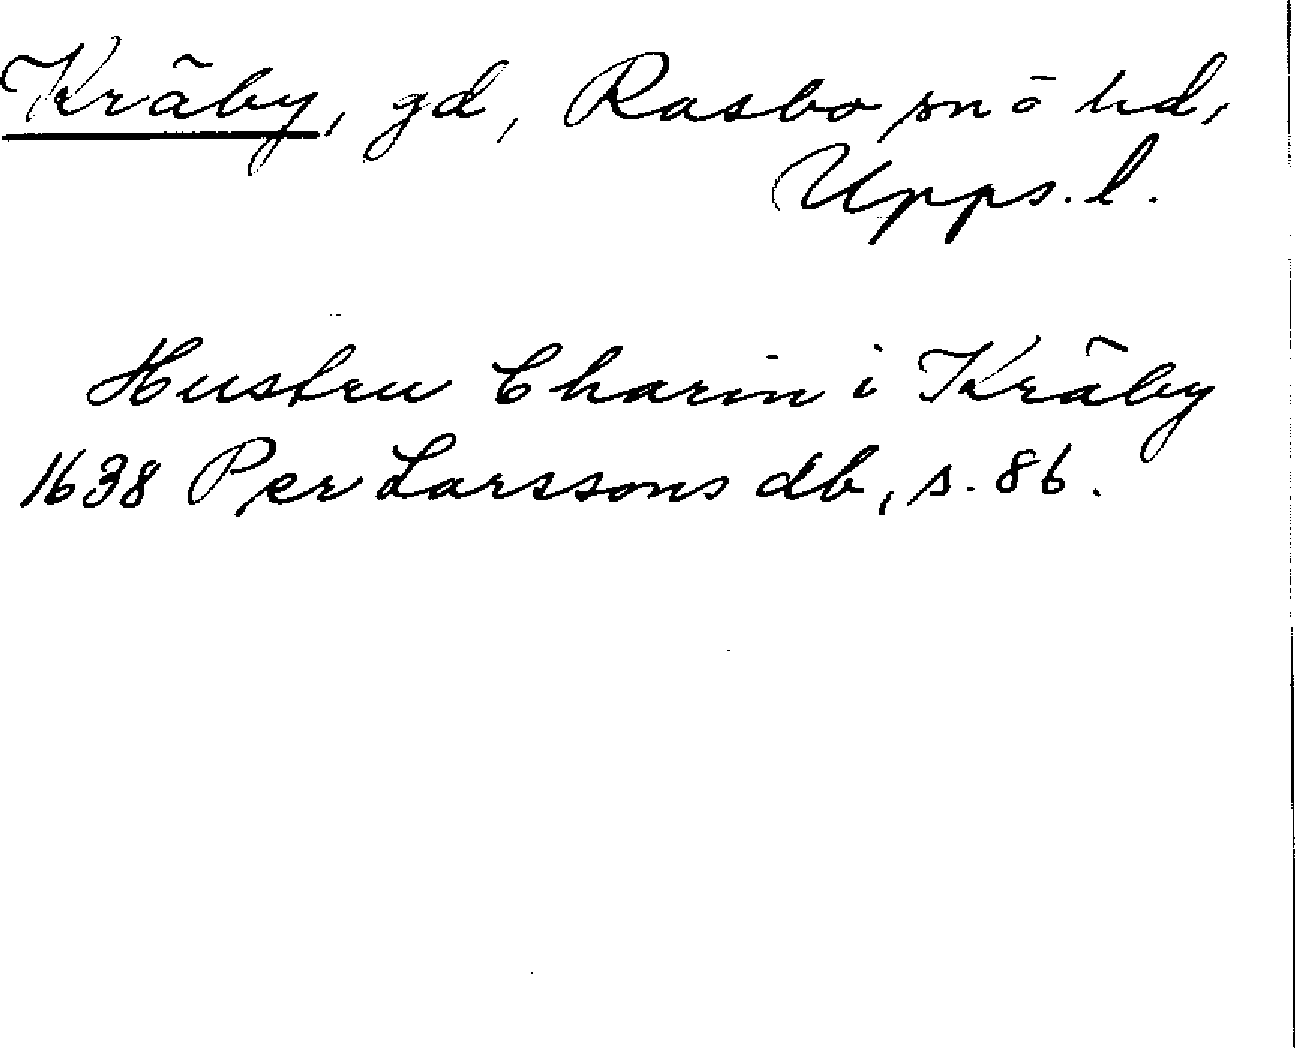 Kräby, gd, Rasbo sn ö hd,
Upps. l.
Hustru Charin i Kräby
1638 Per Larssons db, s. 86.